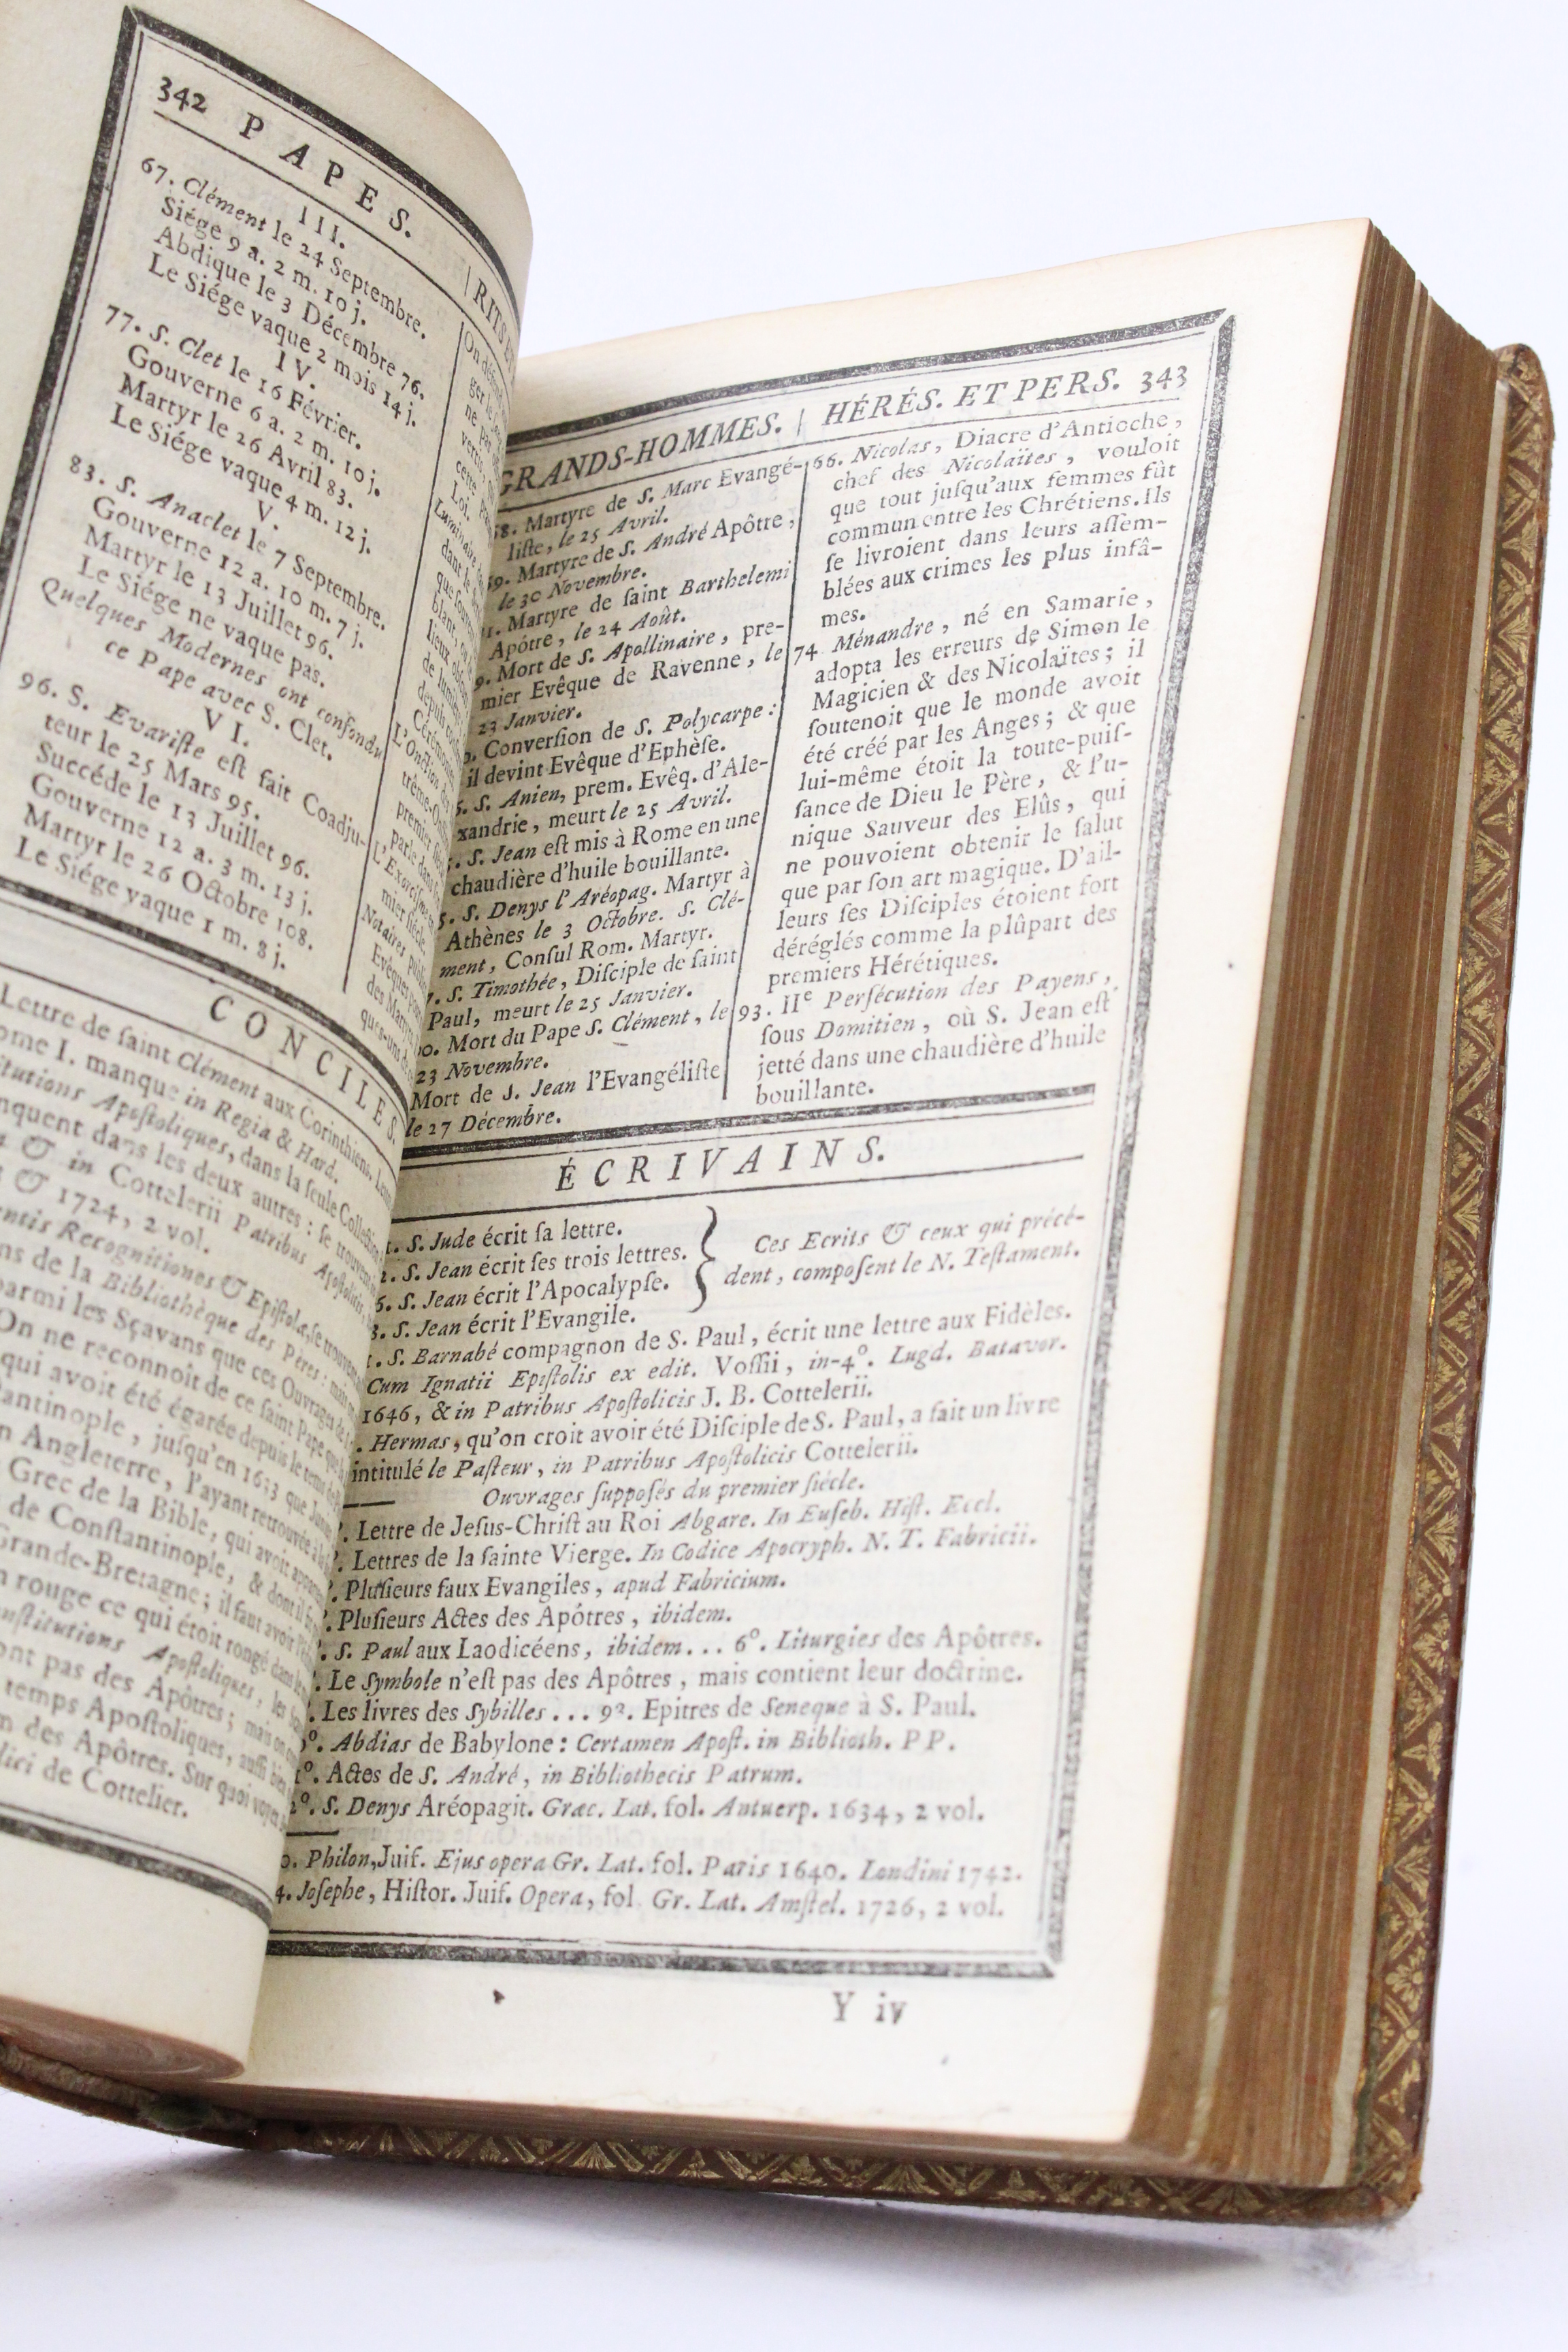 342 PAPES.
III.
67. Clément le 24 Septembre.
Siége 9 a. 2 m. 10 j.
Abdique le 3 Décembre 76.
Le Siége vaque 2 mois 14 j.
IV.
77. S. Clet le 16 Février.
Gouverne 6 a. 2 m. 10 j.
Martyr le 26 Avril 83.
Le Siége vaque 4 m. 12 j.
V.
83. S. Anaclet le 7 Septembre.
Gouverne 12 a. 10 m. 7 j.
Martyr le 13 Juillet 96.
Le Siége ne vaque pas.
Quelques Modernes ont confondu
ce Pape avec S. Clet.
VI.
96. S. Evariſte eſt fait Coadju-
teur le 25 Mars 95.
Succéde le 13 Juillet 96.
Gouverne 12 a. 3 m. 13 j.
Martyr le 26 Octobre 108.
Le Siége vaque 1 m. 8 j.
RITS
On
ger
ne
cette
Loi.
Luminaire
dant le
que
blant,
lieux
de
depuis
Cérémonies
L'Onction
trême-
premier
parle dans
L'Exorciſme
mier ſiécle.
Notaires
Evêques
des Martyrs
ques-uns
CONCILES.
Lettre de ſaint Clément aux Corinthiens.
ome I. manque in Regia & Hard.
Apoſtoliques, dans la ſeule Collection
nquent dans les deux autres : ſe trouvent
& in Cottelerii Patribus Apoſtolicis
& 1724, 2 vol.
Recognitiones & Epiſtolæ, ſe trouvent
ns de la Bibliothèque des Pères : mais
parmi les Sçavans que ces Ouvrages
On ne reconnoît de ce ſaint Pape que
qui avoit été égarée depuis le tems
antinople, juſqu'en 1633 que
n Angleterre, l'ayant retrouvée à la
Grec de la Bible, qui avoit
de Conſtantinople, & dont il
Grande-Bretagne ; il faut avoir
n rouge ce qui étoit rongé dans
Apoſtoliques, les
ont pas des Apôtres ; mais on
temps Apoſtoliques, auſſi bien
des Apôtres. Sur quoi voyez
de Cottelier.
GRANDS-HOMMES.
58. Martyre de S. Marc Evangé-
liſte, le 25 Avril.
59. Martyre de S. André Apôtre,
le 30 Novembre.
1. Martyre de ſaint Barthelemi
Apôtre, le 24 Août.
9. Mort de S. Apollinaire, pre-
mier Evêque de Ravenne, le
23 Janvier.
Converſion de S. Polycarpe :
il devint Evêque d'Ephèſe.
S. Anien, prem. Evêq. d'Ale-
xandrie, meurt le 25 Avril.
S. Jean eſt mis à Rome en une
chaudière d'huile bouillante.
5. S. Denys l'Aréopag. Martyr à
Athènes le 3 Octobre. S. Clé-
ment, Conſul Rom. Martyr.
S. Timothée, Diſciple de ſaint
Paul, meurt le 25 Janvier.
Mort du Pape S. Clément, le
23 Novembre.
Mort de S. Jean l'Evangéliſte
le 27 Décembre.
HÉRÉS. ET PERS. 343
66. Nicolas, Diacre d'Antioche,
chef des Nicolaïtes, vouloit
que tout juſqu'aux femmes fût
commun entre les Chrétiens. Ils
ſe livroient dans leurs aſſem-
blées aux crimes les plus infâ-
mes.
74 Ménandre, né en Samarie,
adopta les erreurs de Simon le
Magicien & des Nicolaïtes ; il
ſoutenoit que le monde avoit
été créé par les Anges ; & que
lui-même étoit la toute-puiſ-
ſance de Dieu le Père, & l'u-
nique Sauveur des Elûs, qui
ne pouvoient obtenir le ſalut
que par ſon art magique. D'ail-
leurs ſes Diſciples étoient fort
déréglés comme la plûpart des
premiers Hérétiques.
93. IIe Perſécution des Payens,
ſous Domitien, où S. Jean eſt
jetté dans une chaudière d'huile
bouillante.
ÉCRIVAINS.
S. Jude écrit ſa lettre.
2. S. Jean écrit ſes trois lettres.
S. Jean écrit l'Apocalypſe.
S. Jean écrit l'Evangile.
Ces Ecrits & ceux qui précé-
dent, compoſent le N. Teſtament.
S. Barnabé compagnon de S. Paul, écrit une lettre aux Fidèles.
Cum Ignatii Epiſtolis ex edit. Voſſii, in-4°. Lugd. Batavor.
1646, & in Patribus Apoſtolicis J. B. Cottelerii.
Hermas, qu'on croit avoir été Diſciple de S. Paul, a fait un livre
intitulé le Paſteur, in Patribus Apoſtolicis Cottelerii.
Ouvrages ſuppoſés du premier ſiécle.
Lettre de Jeſus-Chriſt au Roi Abgare. In Euſeb. Hiſt. Eccl.
Lettres de la ſainte Vierge. In Codice Apocryph. N. T. Fabricii.
Pluſieurs faux Evangiles, apud Fabricium.
Pluſieurs Actes des Apôtres, ibidem.
S. Paul aux Laodicéens, ibidem... 6°. Liturgies des Apôtres.
Le Symbole n'eſt pas des Apôtres, mais contient leur doctrine.
Les livres des Sybilles... 9°. Epitres de Seneque à S. Paul.
Abdias de Babylone : Certamen Apoſt. in Biblioth. PP.
1°. Actes de S. André, in Bibliothecis Patrum.
2°. S. Denys Aréopagit. Græc. Lat. fol. Antuerp. 1634, 2 vol.
Philon, Juif. Ejus opera Gr. Lat. fol. Paris 1640. Londini 1742.
4. Joſephe, Hiſtor. Juif. Opera, fol. Gr. Lat. Amſtel. 1726, 2 vol.
Y iv